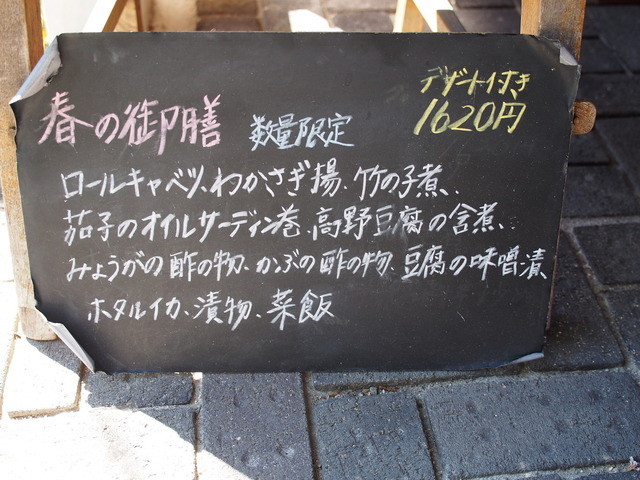 デザート付き
春の御膳 数量限定 1620円
ロールキャベツ、わかさぎ揚、竹の子煮、
茄子のオイルサーディン巻、高野豆腐の含煮、
みょうがの酢の物、かぶの酢の物、豆腐の味噌漬
ホタルイカ、漬物、菜飯